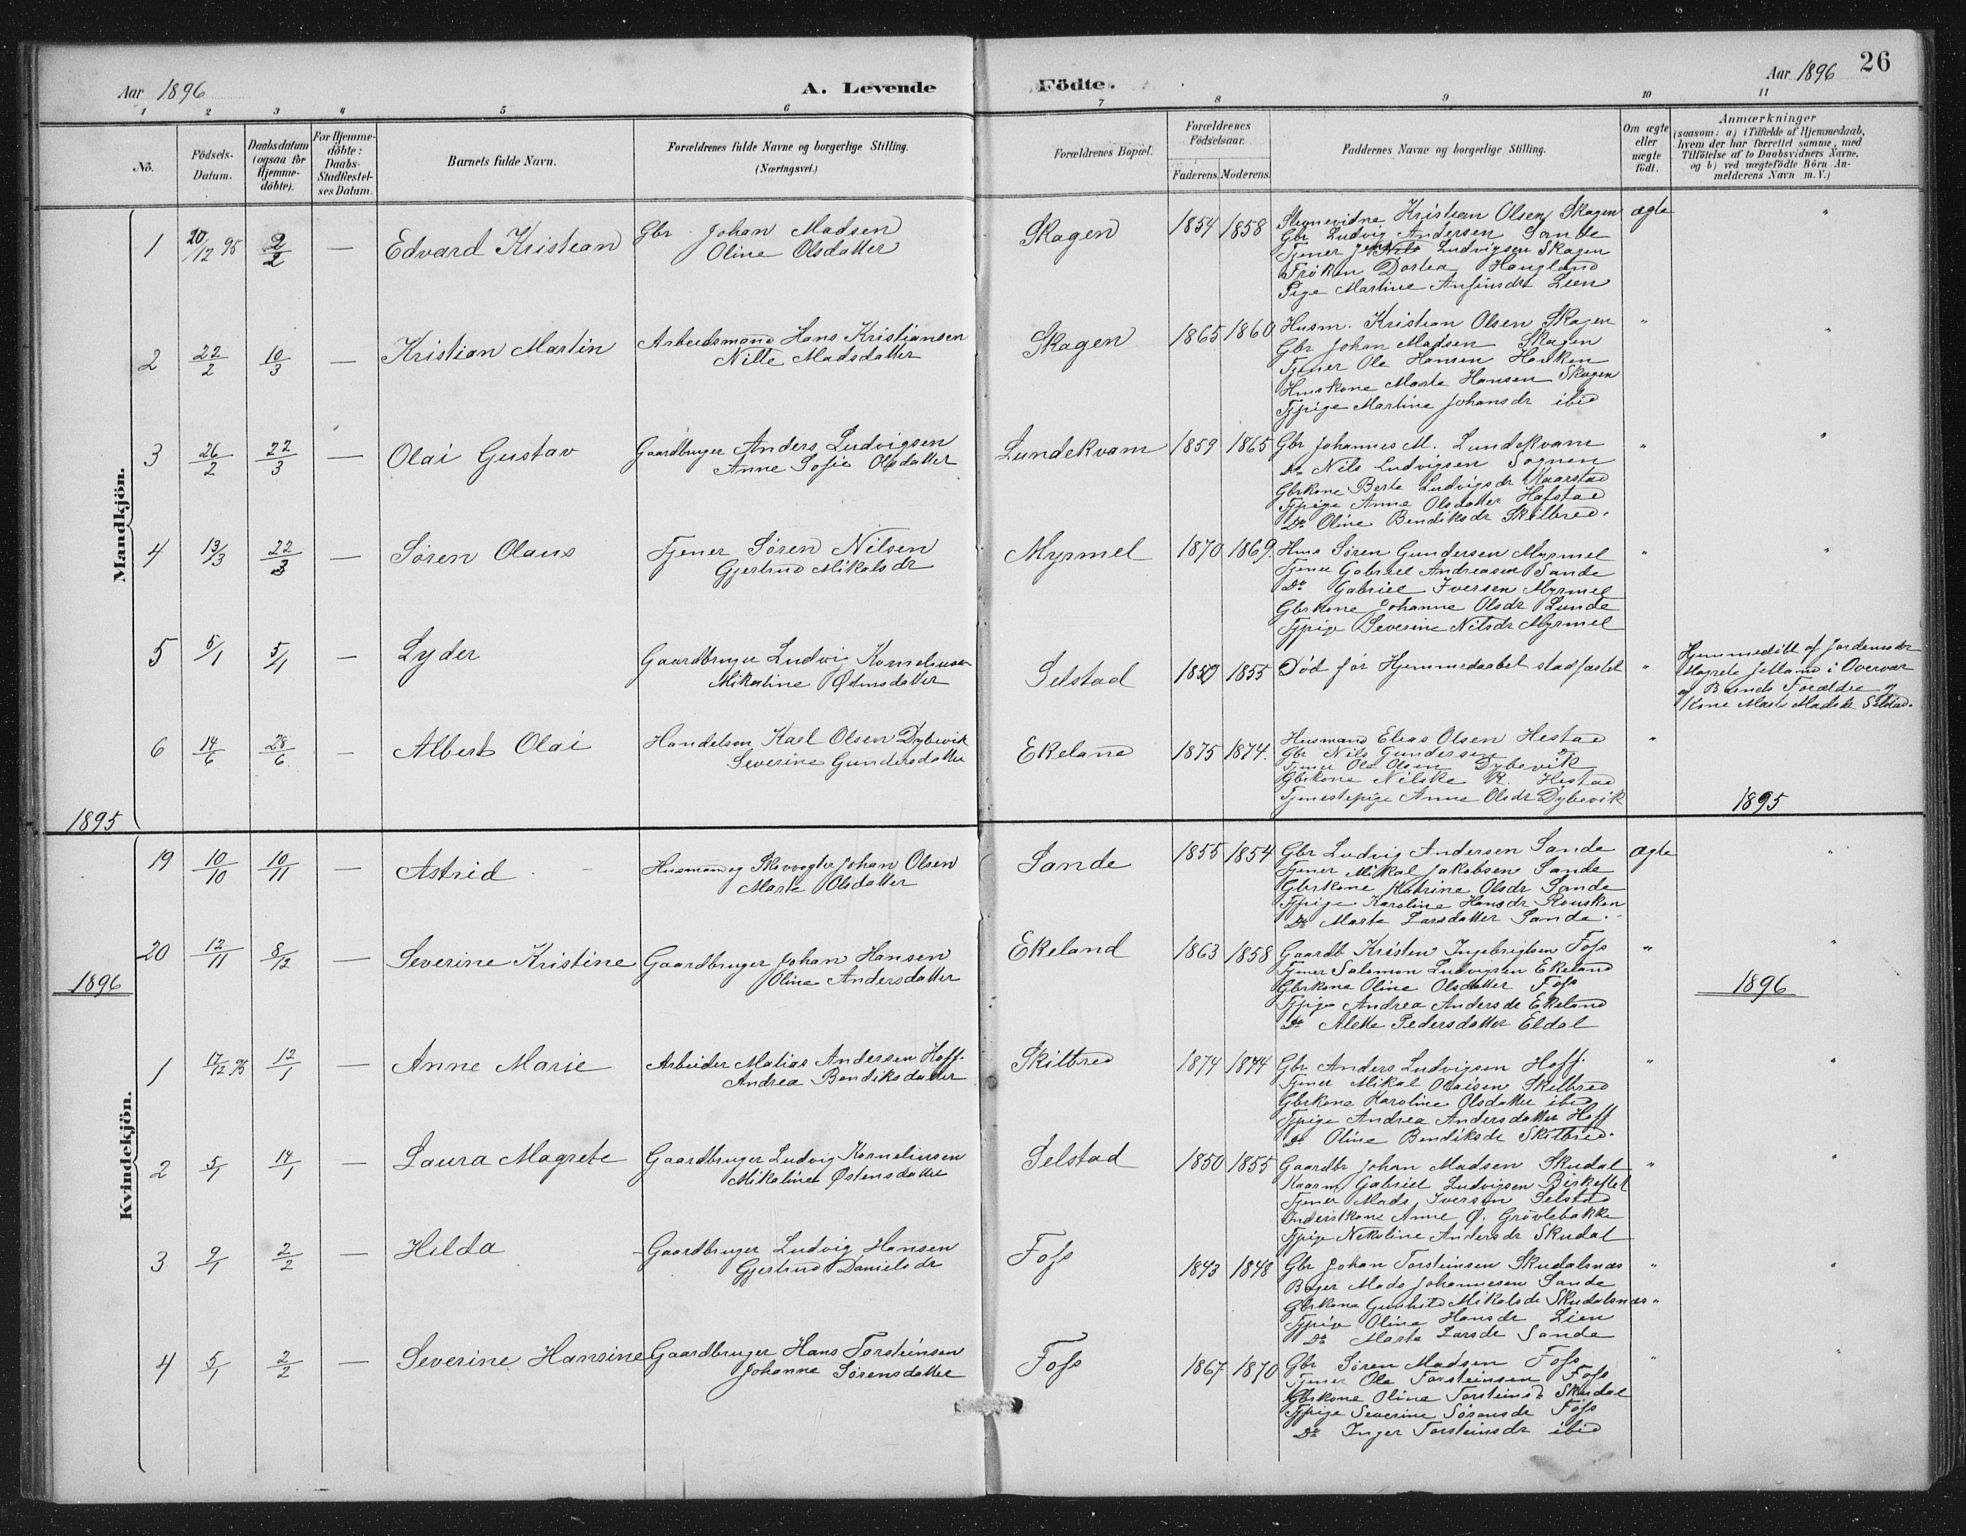 Aar 1896
A. Levende Födte.
Aar 1896
26
1 2 3 4 5 6 7 8 9 10 11
No.
Födsels-Datum.
Daabsdatum (ogsaa for Hjemmedöbte).
For Hjemmedöbte: Daabs-Stadfæstelses Datum.
Barnets fulde Navn.
Forældrenes fulde Navne og borgerlige Stilling. (Næringsvei.)
Forældrenes Bopæl.
Forældrenes Födselsaar.
Faderens. Moderens.
Faddernes Navne og borgerlige Stilling.
Om ægte eller uægte födt.
Anmærkninger
(saasom: a) i Tilfælde af Hjemmedaab, hvem der har forrettet samme, med Tilföielse af to Daabsvidners Navne, og b) ved uægtefödte Börn Anmelderens Navn m. V.)
Mandkjön.
1 20/12 95 2/2 — Edvard Kristian
Gbr Johan Madsen
Oline Olsdatter
Skagen 1854 1858
Stevnevidne Kristian Olsen Skagen
Gbr Ludvig Andersen Sande
Tjener Ludvigsen Skagen
Frøken Dortea Haugland
Pige Martine Anfinsdt Lien
ægte "
2 22/2 10/3 — Kristian Martin
Arbeidsmand Hans Kristiansen
Nille Madsdatter
Skagen 1865 1860
Husm. Kristian Olsen Skagen
Gbr Johan Madsen Skagen
Tjener Ole Hansen Hauken
Huskone Marte Hansen Skagen
Tjpige Martine Johansdr ibid
" "
3 26/2 22/3 — Olai Gustav
Gaardbruger Anders Ludvigsen
Anne Sofie Olsdatter
Lundekvam 1859 1865
Gbr Johannes M. Lundekvam
Do Nils Ludvigsen Sognen
Gbrkone Berte Ludvigsdr Kaarstad
Tjpige Anne Olsdatter Hafstad
Do Oline Bendiksdr Skilbred.
" "
4 13/3 22/3 — Søren Olaus
Tjener Søren Nilsen
Gjertrud Mikalsdr
Myrmel 1870 1869.
Hus Søren Gundersen Myrmel
Tjener Gabriel Andreasen Sande
Do Gabriel Iversen Myrmel
Gbrkone Johanne Olsdr Lunde
Tjpige Severine Nilsdr Myrmel
" "
5 5/1 5/1 — Lyder
Gaardbruger Ludvig Korneliusen
Mikaline Østensdatter
Selstad 1850 1855
Død før Hjemmedaabet stadfæstet
"
Hjemmedöbt af Jordemoder
Magrete Jetland i Overvær
af Barnets Forældre og
Kone Marte Madsdr Selstad.
6 14/6 28/6 — Albert Olai
Handelsm Karl Olsen Dybevik
Severine Gundersdatter
Ekeland 1875 1874.
Husmand Elias Olsen Hestad
Gbr Nils Gundersen Do
Tjener Ole Olsen Dybevik
Gbrkone Nilske R. Hestad
Tjenestepige Anne Olsdr Dybevik
"
1895
1895
Kvindekjön.
19 10/10 10/11 — Astrid
Husmand og Skovvogter Johan Olsen
Marte Olsdatter
Sande 1855 1854
Gbr Ludvig Andersen Sande
Tjener Mikal Jakobsen Sande
Gbrkone Katrine Olsdr Sande
Tjpige Karoline Hansdr Rousken
Do Marte Larsdatter Sande.
ægte "
20 12/11 8/12 — Severine Kristine
Gaardbruger Johan Hansen
Oline Andersdatter
Ekeland 1863 1858
Gaardb Kristen Ingebrigtsen Fofs
Tjener Salomon Ludvigsen Ekeland
Gbrkone Oline Olsdatter Fofs
Tjpige Andrea Andersdr Ekeland
Do Alette Pedersdatter Eldal
" "
1896
1896
1 17/12 95 12/1 — Anne Marie
Arbeider Matias Andersen Hoff.
Andrea Bendiksdatter
Skilbred 1874 1874
Gbr Anders Ludvigsen Hoff.
Tjener Mikal Olaisen Skilbred
Gbrkone Karoline Olsdatter ibid
Tjpige Andrea Andersdatter Hoff
Do Oline Bendiksdr Skilbred.
" "
2 5/1 14/1 — Laura Magrete
Gaardbruger Ludvig Korneliusen
Mikaline Østensdatter
Selstad 1850 1855
Gaardbr Johan Madsen Skudal
Kaarm Gabriel Ludvigsen Birkeflet
Tjener Mads Iversen Selstad
Inderstkone Anne Ø. Grövlebakke
Tjpige Nikoline Andersdr Skudal
" "
3 9/1 2/2 — Hilda
Gaardbruger Ludvig Hansen
Gjertrud Danielsdr
Fofs 1843 1848
Gbr Johan Torsteinsen Skudalsnæs
Bager Mads Johannesen Sande
Gbrkone Gunhild Mikalsdr Skudalsnæs
Tjpige Oline Hansdr Lien
Do Marte Larsdr Sande
" "
4 5/1 2/2 — Severine Hansine
Gaardbruger Hans Torsteinsen
Johanne Sørensdatter
Fofs 1867 1870
Gbr Søren Madsen Fofs
Tjener Ole Torsteinsen Fofs
Gbrkone Oline Torsteinsd Skudal
Tjpige Severine Sørensdr Fofs
Do Inger Torsteinsdr ibid
" "